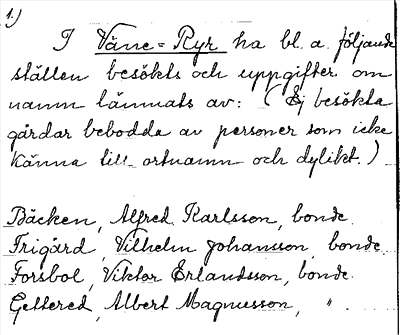 1.)
I Väne=Ryr ha bl. a. följande
ställen besökts och uppgifter om
namn lämnats av: (Ej besökta
gårdar bebodda av personer som icke
känna till ortnamn och dylikt.)
Bäcken, Alfred Karlsson, bonde
Frigärd, Vilhelm Johansson, bonde
Forsbol, Viktor Erlandsson, bonde.
Gettered, Albert Magnusson, "